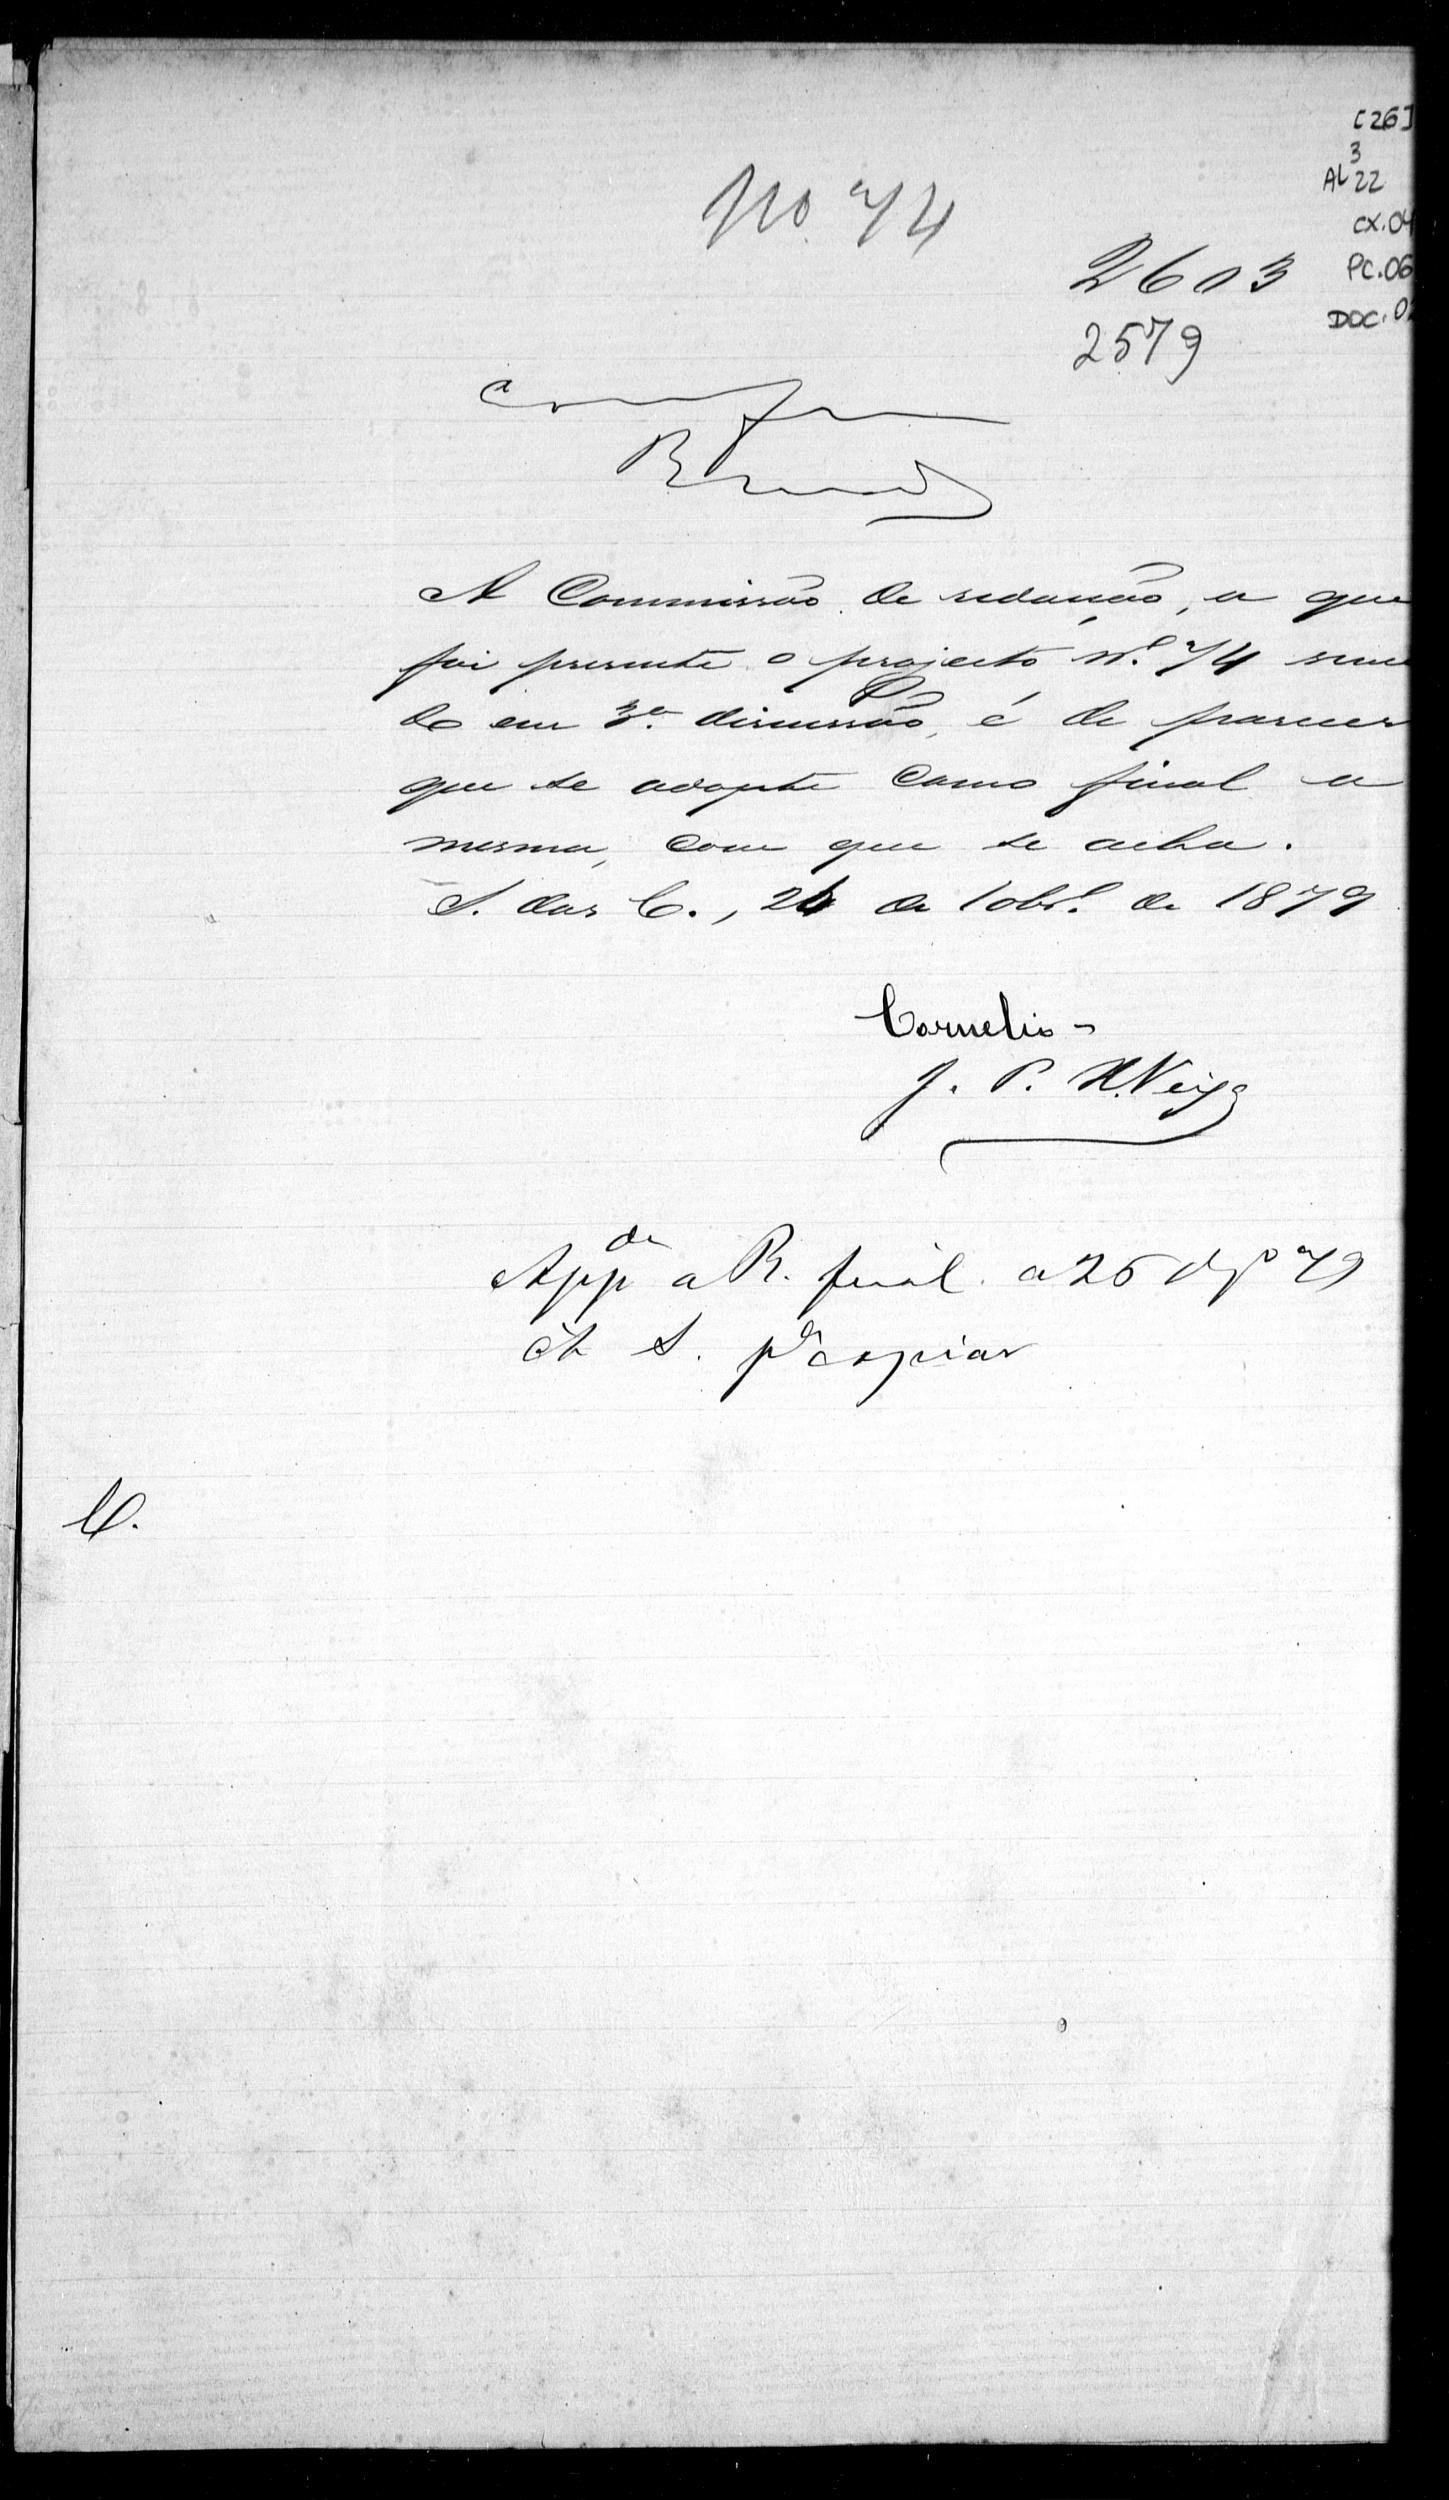 [26]
3
AL 22
CX.04
PC.06
DOC.02
No 74
2603
2579
A Commissão de redacção, a que
foi presente o projecto n.º 74
do em 3.ª discussão, é de parecer
que se adopte como final a
mesma, com que se acha.
S. das C., 26 de 10br.º de 1879
Cornelio
J. P. X. Veiga
App.da a R. final a 26 79
Á S. p.a copiar
C.